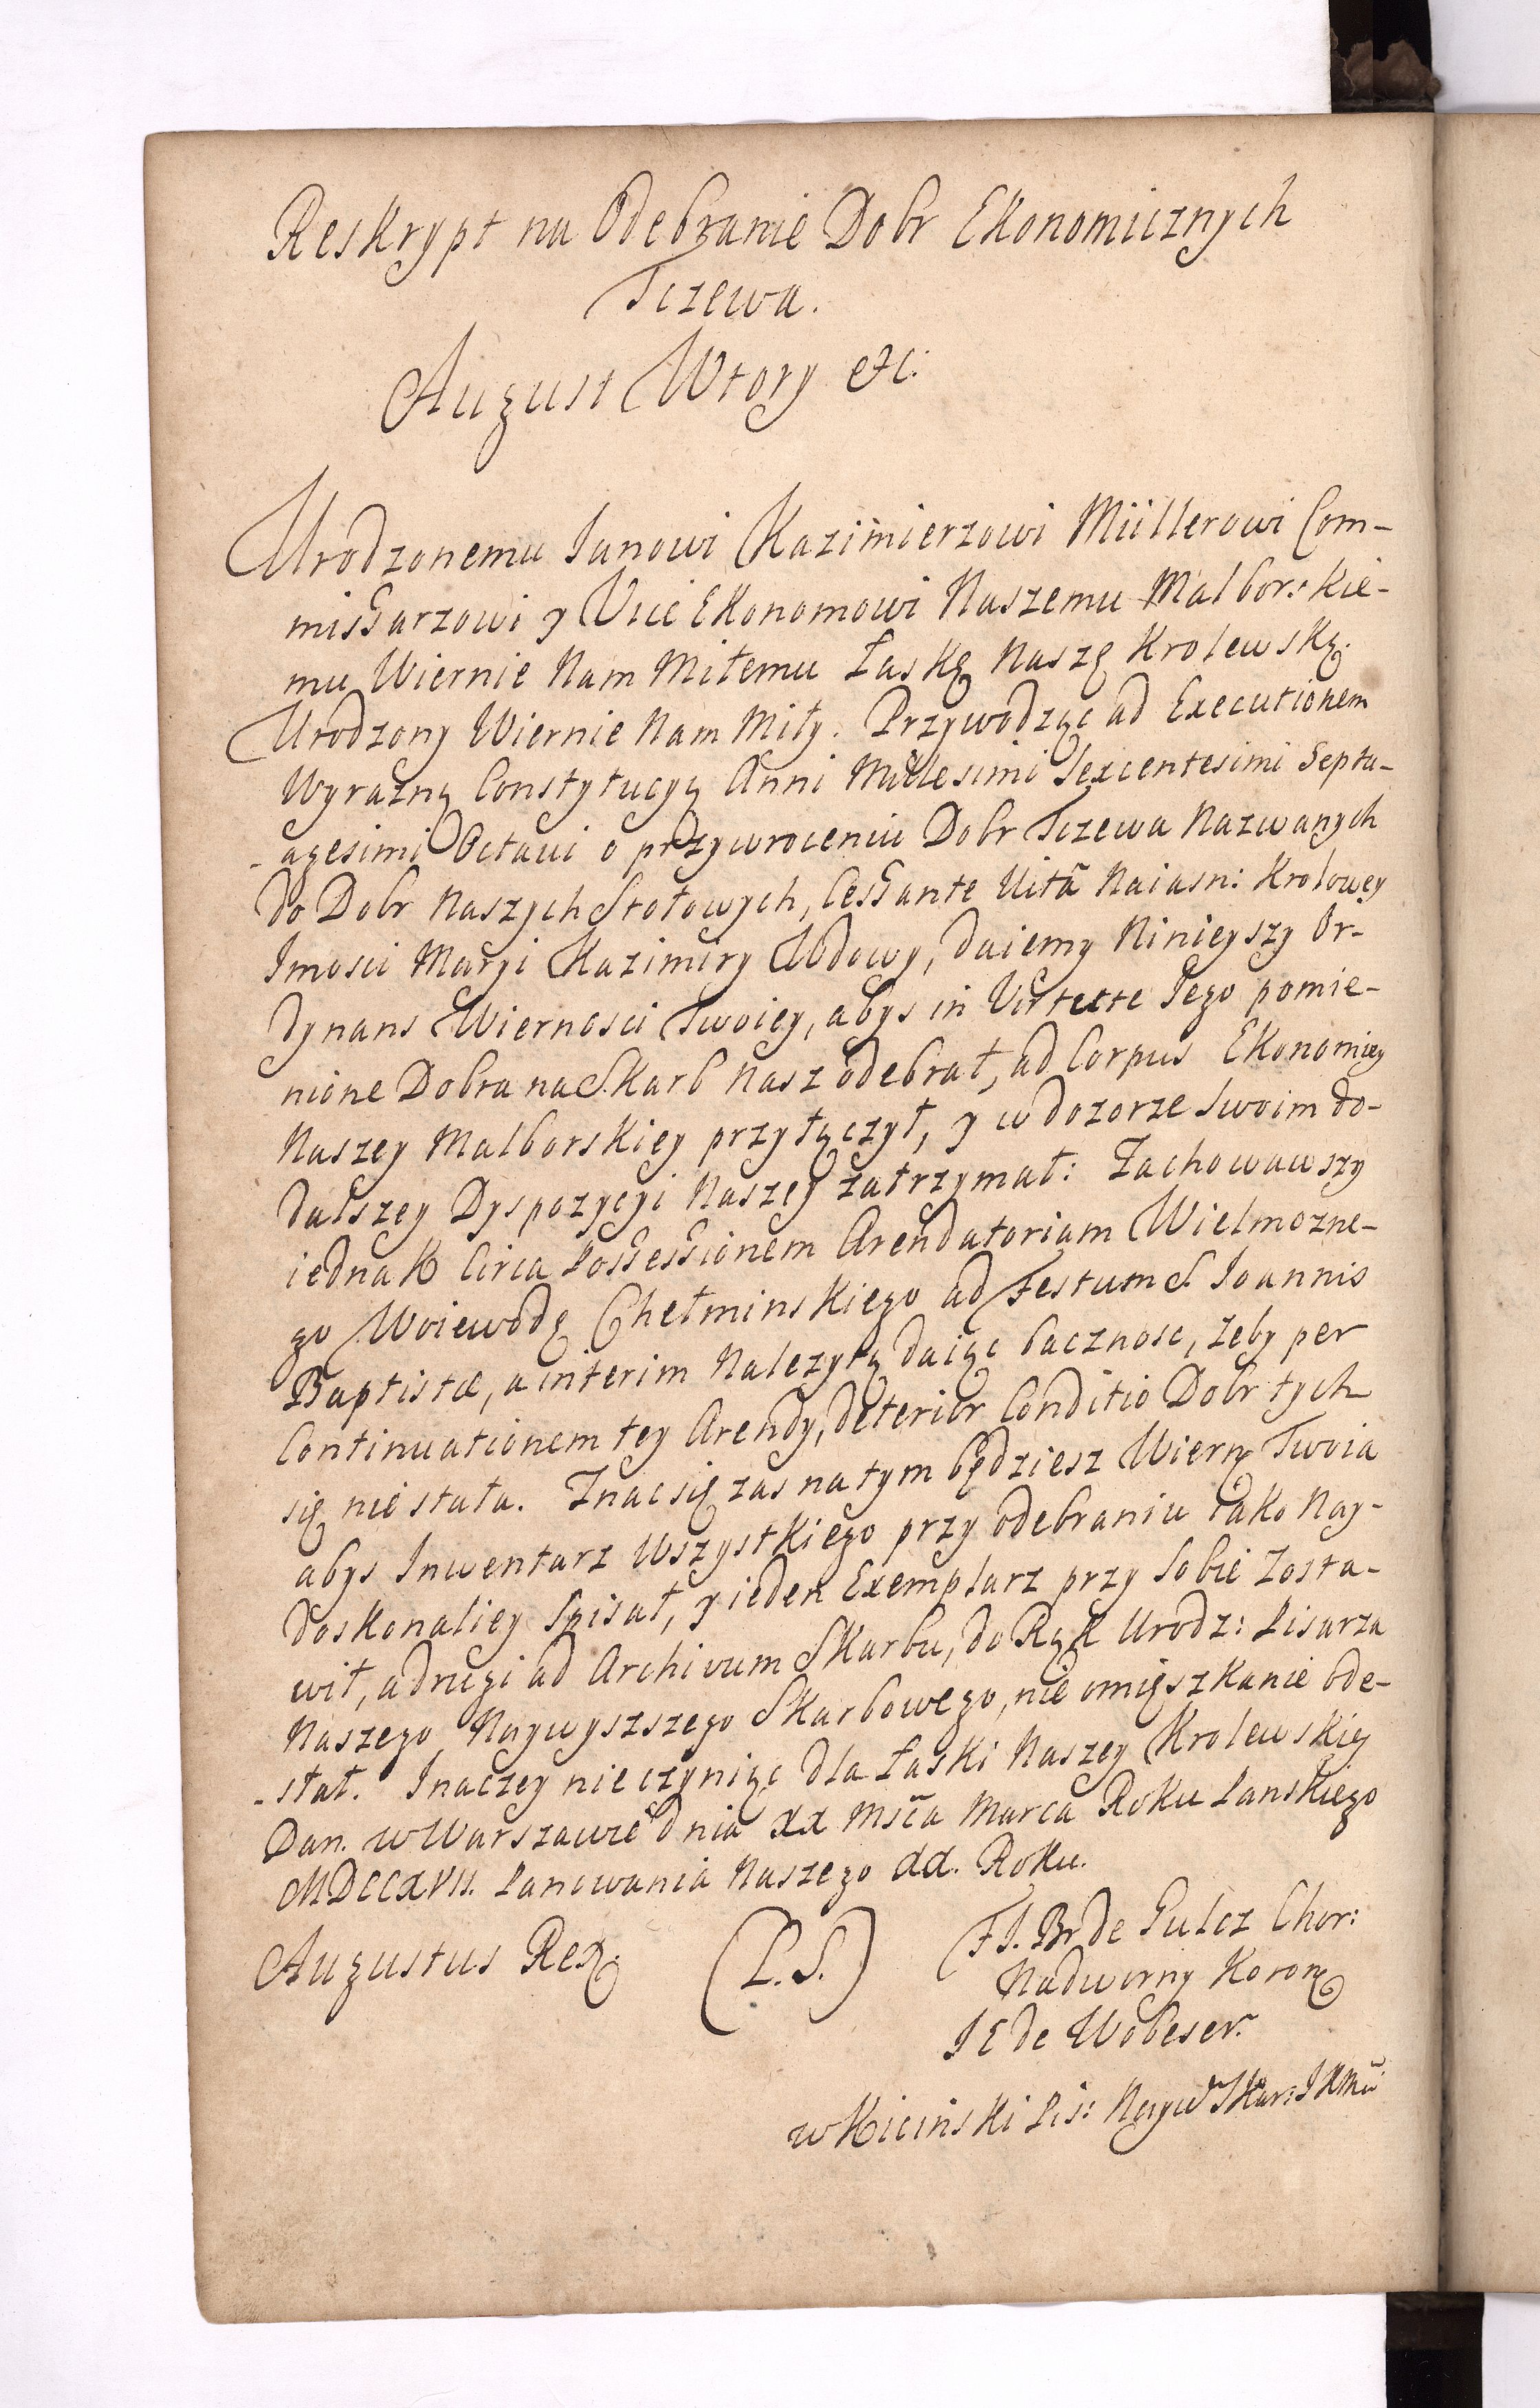 Reskrypt na Odebranie Dobr Ekonomicznych
Tczewa.
August Wtory etc:
Urodzonemu Janowi Kazimierzowi Müllerowi Com-
missarzowi y Vice Ekonomowi Naszemu Malbor:skie-
mu Wiernie Nam Miłemu Łaskę Naszę Krolewską.
Urodzony Wiernie Nam Miły. Przywodząc ad Executionem
Wyrazną Constytucyą Anni Millesimi Sexcentesimi Septu-
-agesimi Octavi o przywroceniu Dobr Tczewa Nazwanych
do Dobr Naszych Stołowych, Cessante Vitâ Naiasn: Krolowey
Jmosci Maryi Kazimiry Wdowy, daiemy Ninieyszy Or-
dynans Wiernosci Twoiey, abys in Virtute Jego pomie-
nione Dobra na Skarb Nasz odebrał, ad Corpus Ekonomiey
Naszey Malborskiey przyłączył, y w dozorze swoim do-
dalszey Dyspozycyi Naszey zatrzymał: Zachowawszy
iednak Circa Possessionem Arendatoriam Wielmozne-
go Woiewodę Chełminskiego ad Festum S. Joannis
Baptistæ, a interim Nalezytą daiąc bacznosc, zeby per
Continuationem tey Arendy, deterior Conditio Dobr tych
się nie stała. Znac się zas na tym będziesz Wierń Twoia
abys Inwentarz Wszystkiego przy odebraniu iako Nay-
doskonaliey Spisał, y ieden Exemplarz przy Sobie Zosta-
wił, a drugi ad Archivum Skarbu, do Rąk Urodz: Pisarza
Naszego Naywyszszego Skarbowego, nie omięszkanie ode-
-słał. Inaczey nie czyniąc dla Łaski Naszey Krolewskiey
Dan. w Warszawie dnia XX Msca Marca Roku Panskiego
MDCCXVII. Panowania Naszego XX. Roku.
Augustus Rex. (L.S.) F J. Br de Gulcz Chor:
Nadworny Koron
J E de Wobeser.
w Kicinski Pis: Nayw Skar: J K Mci